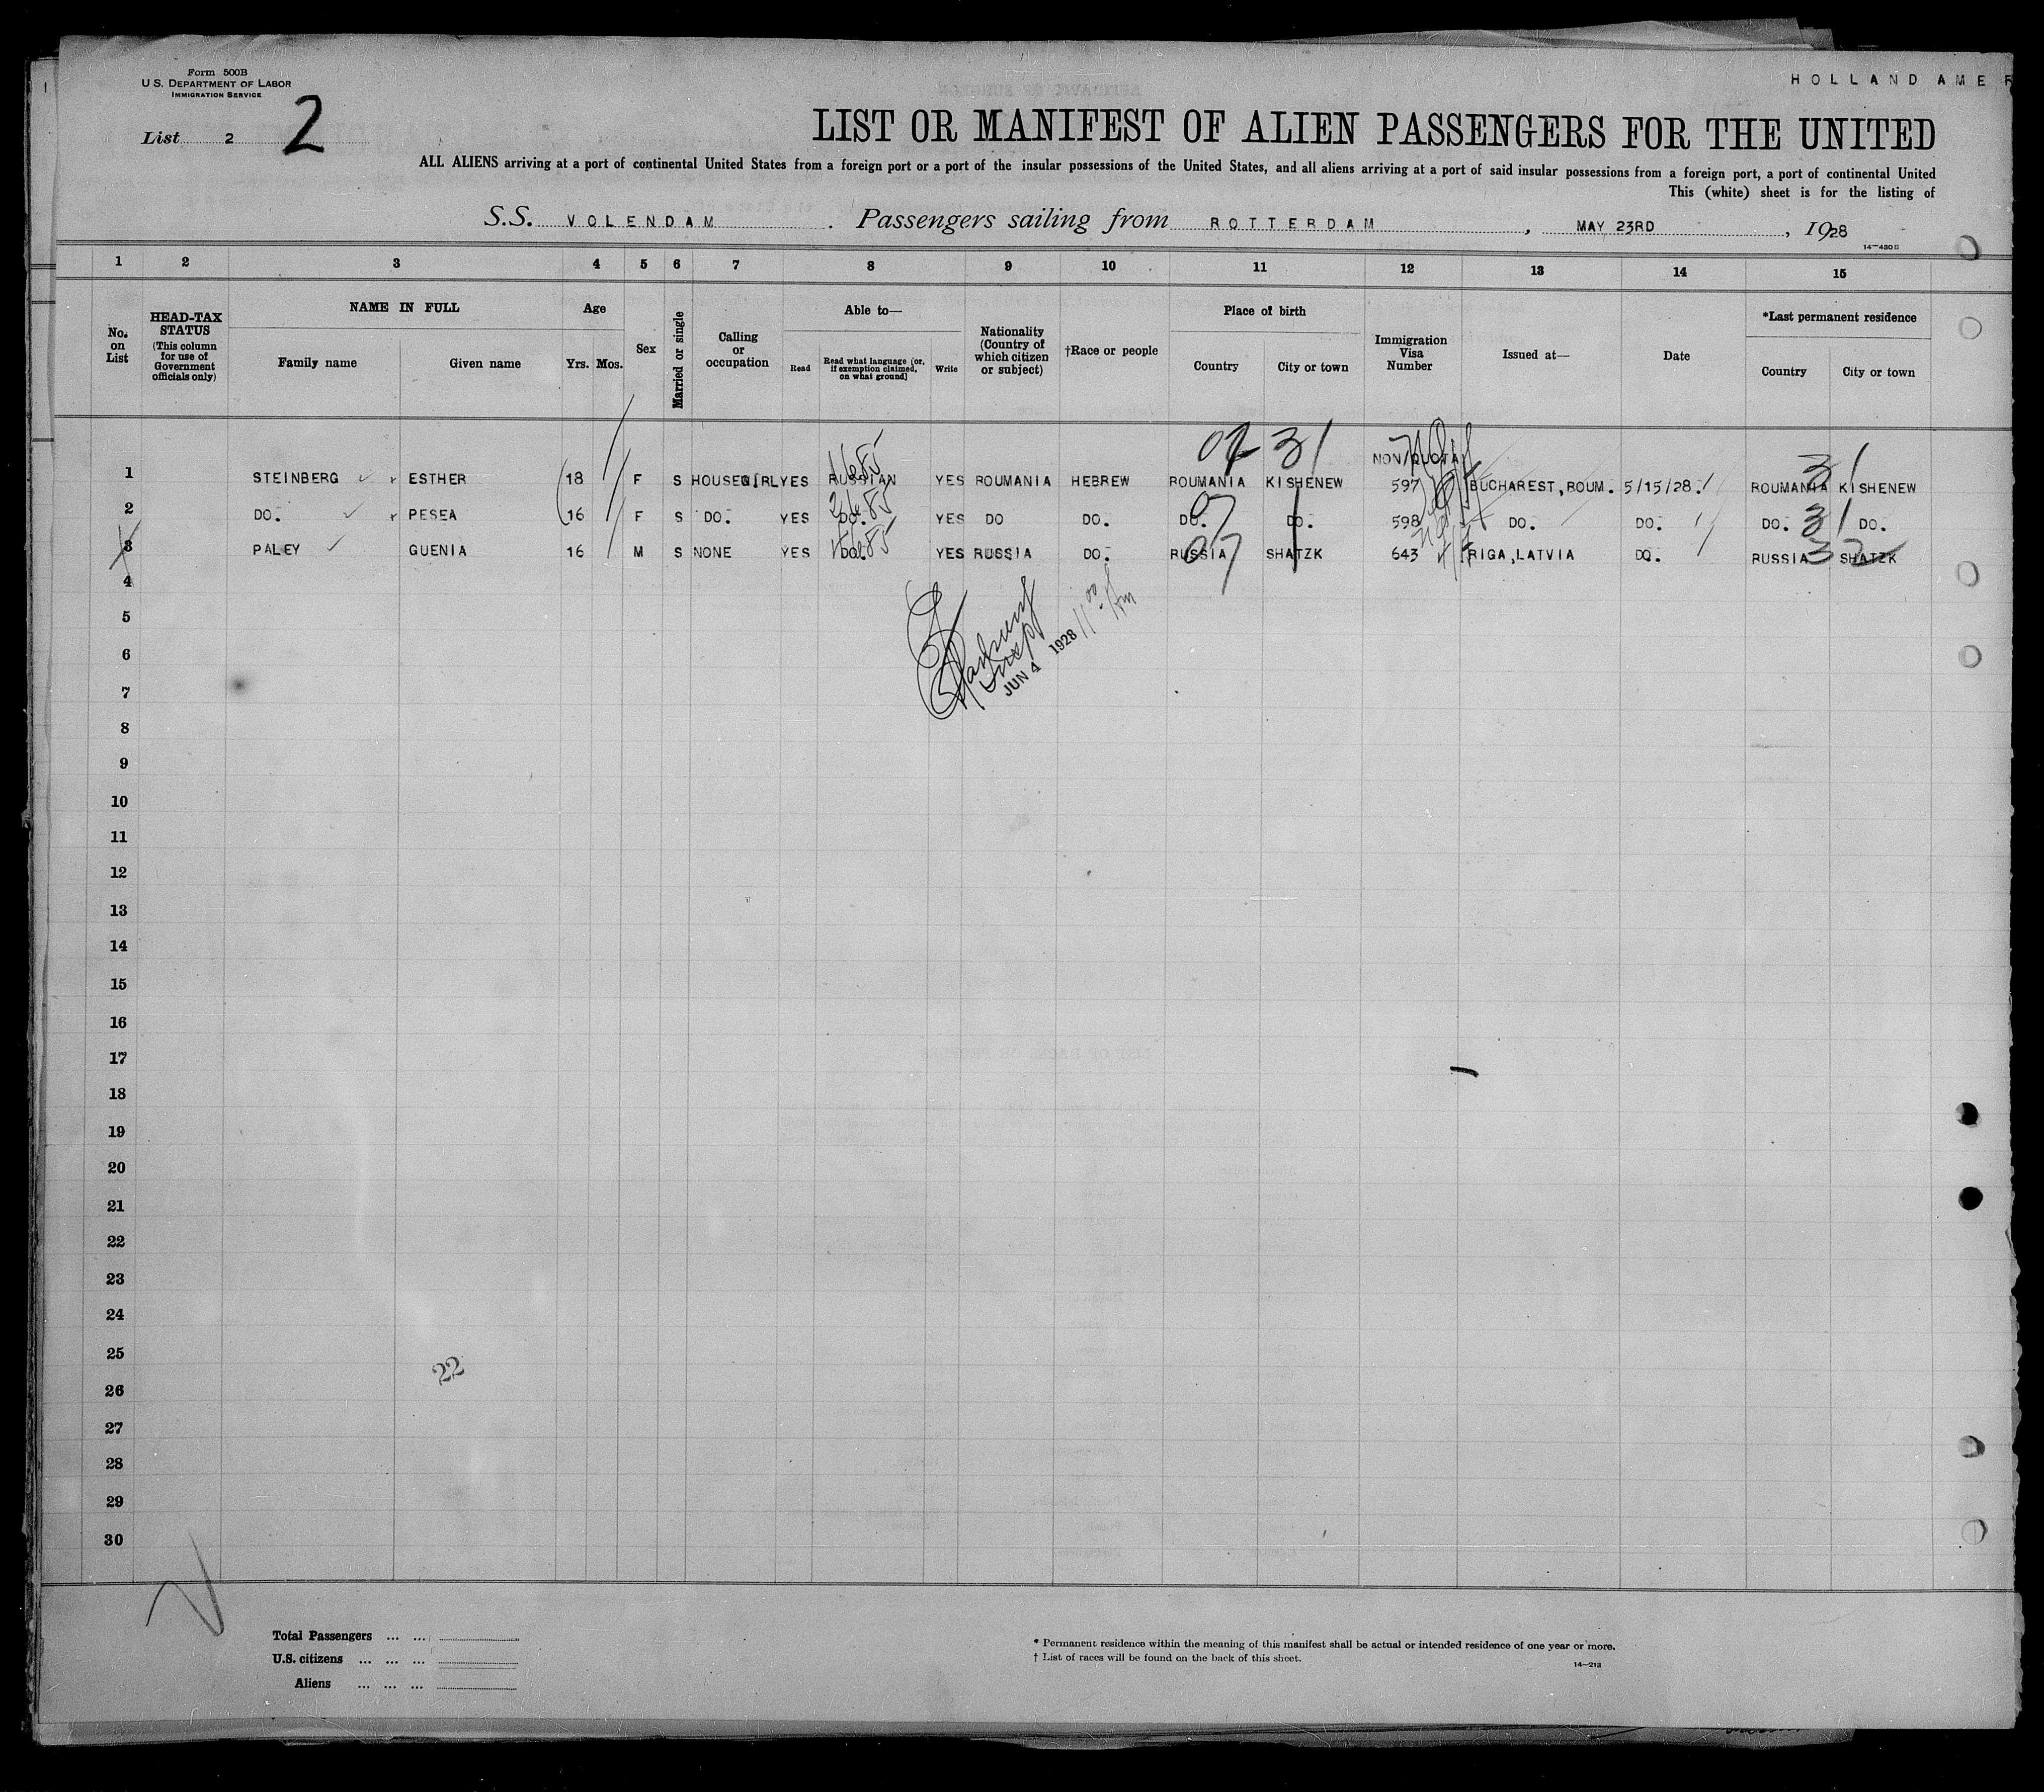 Form 500B
U. S. DEPARTMENT OF LABOR
IMMIGRATION SERVICE
HOLLAND AMER
List 2 2
LIST OR MANIFEST OF ALIEN PASSENGERS FOR THE UNITED
ALL ALIENS arriving at a port of continental United States from a foreign port or a port of the insular possessions of the United States, and all aliens arriving at a port of said insular possessions from a foreign port, a port of continental United
This (white) sheet is for the listing of
S.S. VOLENDAM. Passengers sailing from ROTTERDAM, MAY 23RD, 1928
14-430 B
1 2 3 4 5 6 7 8 9 10 11 12 13 14 15
No. on List
HEAD-TAX STATUS (This column for use of Government officials only)
NAME IN FULL
Family name Given name
Age
Yrs. Mos.
Sex
Married or single
Calling or occupation
Able to—
Read Read what language [or, if exemption claimed, on what ground] Write
Nationality (Country of which citizen or subject)
†Race or people
Place of birth
Country City or town
Immigration Visa Number
Issued at—
Date
*Last permanent residence
Country City or town
07 31
NON/QUOTA
1 STEINBERG ESTHER 18 F S HOUSEGIRL YES RUSSIAN YES ROUMANIA HEBREW ROUMANIA KISHENEW 597 BUCHAREST, ROUM. 5/15/28. ROUMANIA 31 KISHENEW
2 DO. PESEA 16 F S DO. YES DO. YES DO DO. DO. DO. 598 DO. DO. DO. 31 DO.
3 PALEY GUENIA 16 M S NONE YES DO. YES RUSSIA DO. RUSSIA SHATZK 643 RIGA, LATVIA DO. RUSSIA 32 SHATZK
4
5
6
JUN 4 1928 11 00 AM
7
8
9
10
11
12
13
14
15
16
17
18
19
20
21
22
23
24
25
22
26
27
28
29
30
Total Passengers ... ...
U.S. citizens ... ... ...
Aliens ... ... ...
* Permanent residence within the meaning of this manifest shall be actual or intended residence of one year or more.
† List of races will be found on the back of this sheet.
14-213